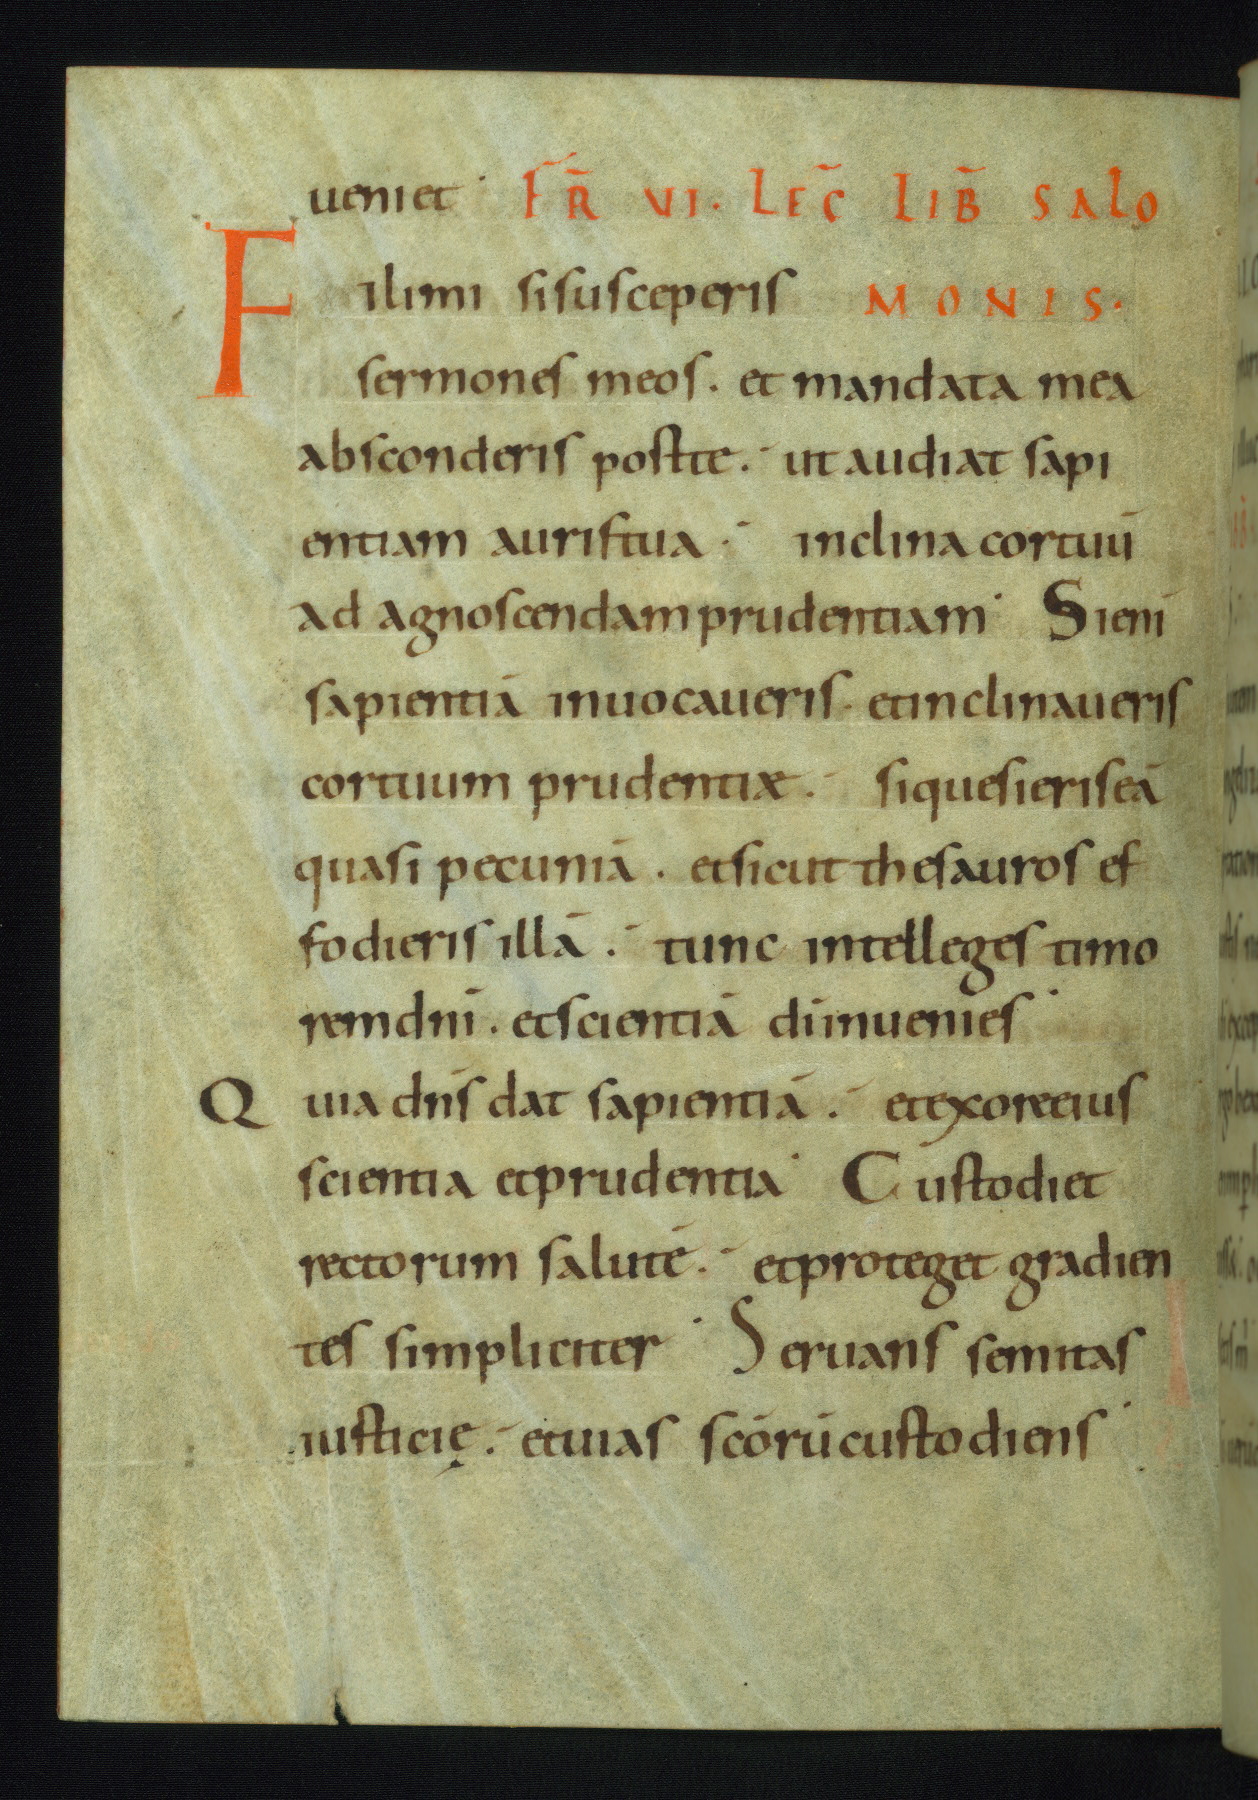 ueniet· FR̄ VI. LEC̄ LIB̄ SALO
Fili mi si susceperis MONIS.
sermones meos. et mandata mea
absconderis post te. ut audiat sapi
entiam auris tua. inclina cor tuū
ad agnoscendam prudentiam· Si eni̅
sapientiā inuocaueris. et inclinaueris
cor tuum prudentiæ. si quesieris eā
quasi pecuniā. et sicut thesauros ef
foderis illā. tunc intelleges timo
rem dn̄i. et scientiā di̅ inuenies·
Quia dn̄s dat sapientiā. et ex ore eius
scientia et prudentia· Custodiet
rectorum salutē. et proteget gradien
tes simpliciter· Seruans semitas
iusticię. et uias sc̄orū custodiens·